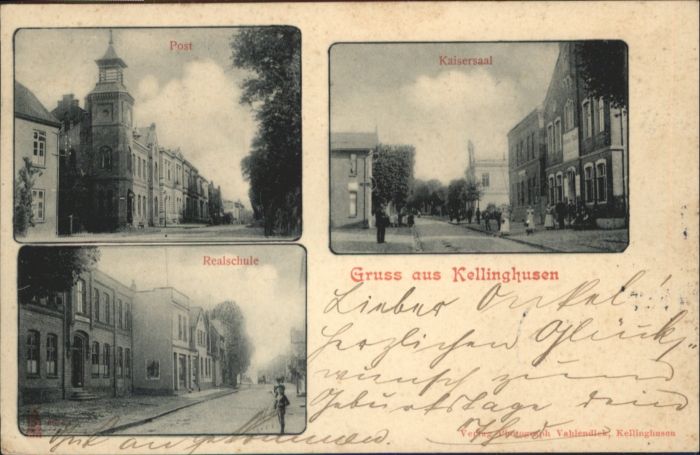 Post
Kaisersaal
Realschule
Gruss aus Kellinghusen
Lieber Onkel!
herzlichen Glück-
wunsch zum
Geburtstage dein
Gut angekommen.
Verlag Photograph Vahlendick, Kellinghusen